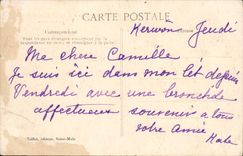 CARTE POSTALE
Correspondance
Jeudi
Ma chere Camille
Je suis ici dans mon lit depuis
Vendredi avec une bronchite
affectueux souvenir a tous
votre amie
Kate